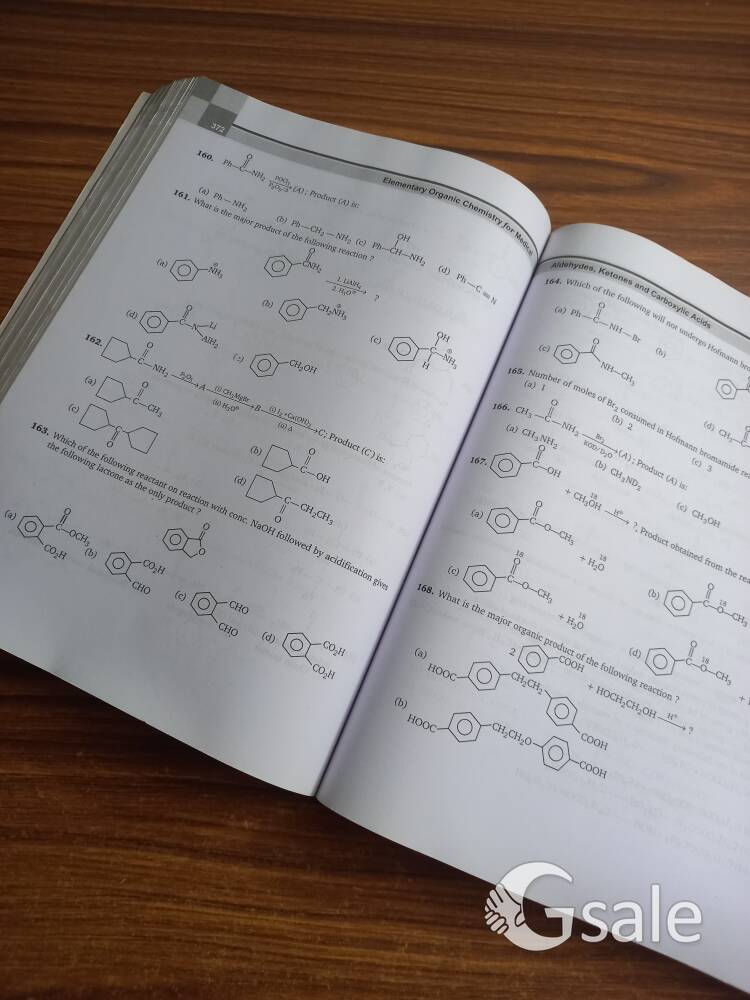 372
Elementary Organic Chemistry for Medical
160. Ph—C—NH₂ POCl₃ P₂O₅/Δ (A); Product (A) is:
O
(a) Ph—NH₂ (b) Ph—CH₂—NH₂ (c) Ph—CH—NH₂ (d) Ph—C≡N
OH
161. What is the major product of the following reaction ?
O
CNH₂ 1. LiAlH₄ 2. H₃O⊕ ?
(a) NH₃ ⊕
(b) CH₂NH₃ ⊕
(c) OH C—NH₃ ⊕ H
(d) O C—N Li AlH₂
CH₂OH
162. C—NH₂ P₂O₅ A (i) CH₃MgBr (ii) H₃O⊕ B (i) I₂+Ca(OH)₂ (ii) Δ C; Product (C) is:
O
(a) O C—CH₃
(b) O C—OH
(c) C O
(d) C—CH₂CH₃ O
163. Which of the following reactant on reaction with conc. NaOH followed by acidification gives
the following lactone as the only product ?
O
O
(a) O C OCH₃ CO₂H
(b) CO₂H CHO
(c) CHO CHO
(d) CO₂H CO₂H
Aldehydes, Ketones and Carboxylic Acids
164. Which of the following will not undergo Hofmann
(a) Ph—C—NH—Br (b)
O
(c) O NH—CH₃
(d) CH₃—C
165. Number of moles of Br₂ consumed in Hofmann bromamide
(a) 1 (b) 2 (c) 3
166. CH₃—C—NH₂ Br₂ KOD/D₂O (A); Product (A) is:
O
(a) CH₃NH₂ (b) CH₃ND₂ (c) CH₃OH
167. O C—OH + CH₃OH 18 H⊕ ?, Product obtained from the
(a) O C O—CH₃ + H₂O 18
(b) O C—O—CH₃ 18
(c) 18 O C O—CH₃ + H₂O 18
(d) O C—O—CH₃ 18 +
168. What is the major organic product of the following reaction ?
2 COOH + HOCH₂CH₂OH H⊕ ?
(a) HOOC CH₂CH₂ COOH
(b) HOOC CH₂CH₂O COOH
Gsale